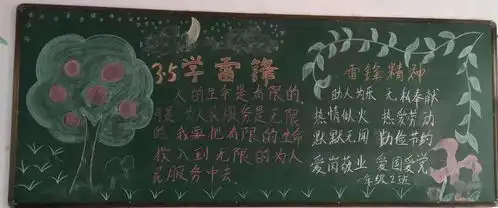 3.5学雷锋
人的生命是有限的,
可是为人民服务是无限
的,我要把有限的生命
投入到无限的为人
民服务中去。
雷锋精神
助人为乐 无私奉献
热情似火 热爱劳动
默默无闻 勤俭节约
爱岗敬业 爱国爱党
年级2班